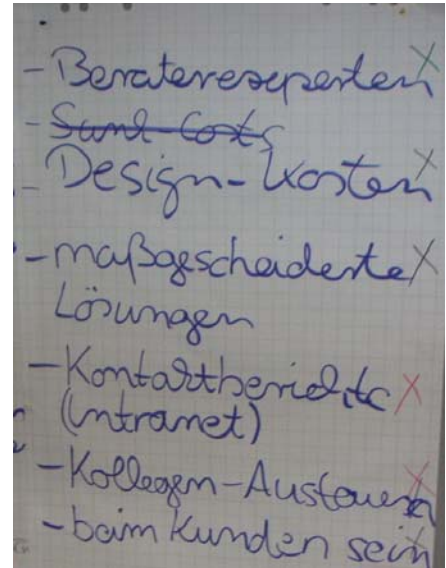 - Beraterexperten
- Sunk-Costs
- Design-Kosten
- maßgescheiderte
Lösungen
- Kontaktberichte
(Intranet)
- Kollegen-Austausch
- beim Kunden sein